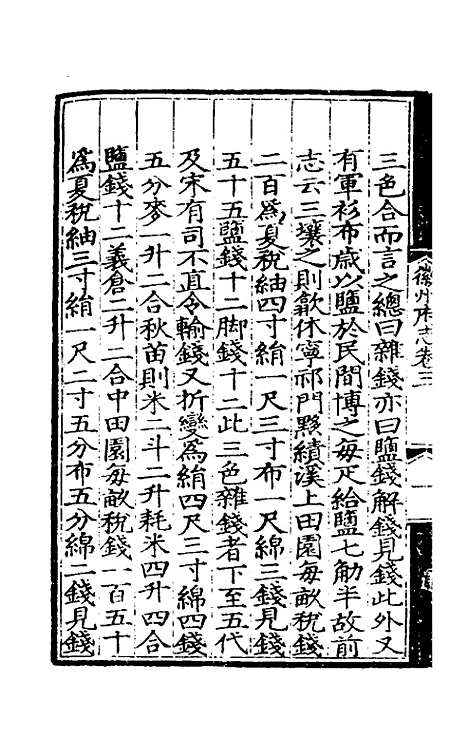 徽州府志卷三
三色合而言之總曰雜錢亦曰鹽錢解錢見錢此外又
有軍衫布歲以鹽於民間博之每疋給鹽七觔半故前
志云三壤之則歙休寧祁門黟績溪上田園每畝稅錢
二百為夏稅紬四寸絹一尺三寸布一尺綿三錢見錢
五十五鹽錢十二脚錢十二此三色雜錢者下至五代
及宋有司不直令輸錢又折變為絹四尺三寸綿四錢
五分麥一升二合秋苗則米二斗二升耗米四升四合
鹽錢十二義倉二升二合中田園每畝稅錢一百五十
為夏稅紬三寸絹一尺二寸五分布五分綿二錢見錢